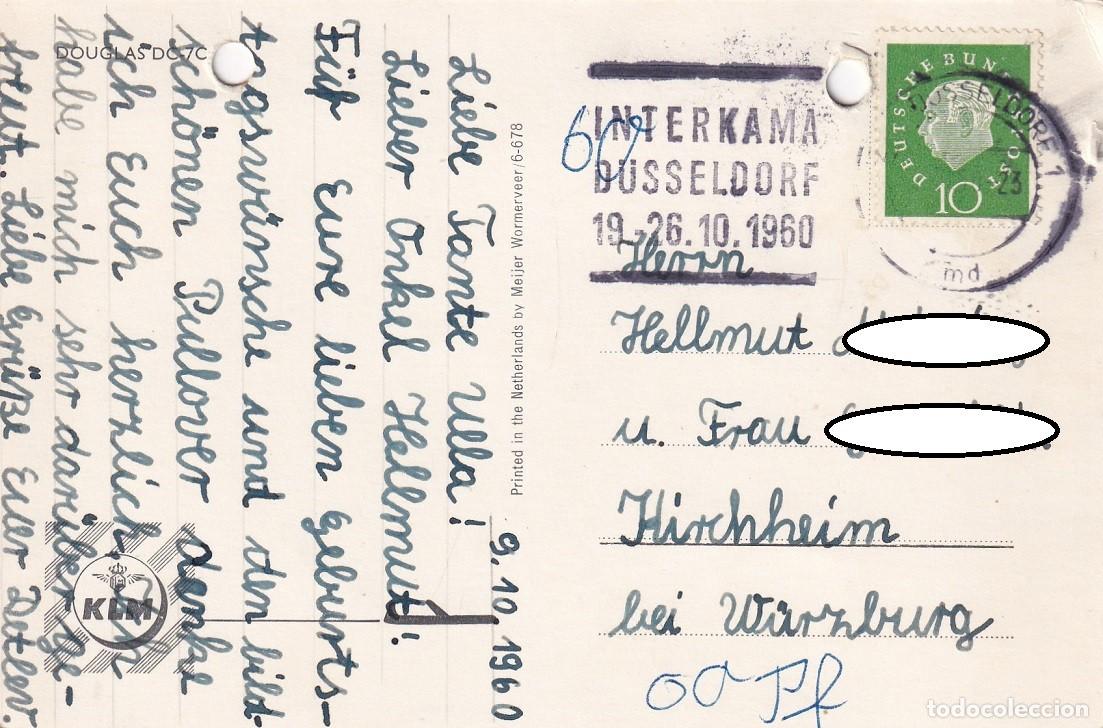 DOUGLAS DC-7C
9.10.1960
Liebe Tante Ulla!
Lieber Onkel Hellmut!
Für Eure lieben Geburts-
tagswünsche und den bild-
schönen Pullover danke
ich Euch herzlich. Ich
habe mich sehr darüber ge-
freut. Liebe Grüße Euer Detlev
KLM
Printed in the Netherlands by Meijer Wormerveer/6-678
60
INTERKAMA
DÜSSELDORF
19.-26.10.1960
DEUTSCHE BUNDESPOST
10
DÜSSELDORF 1
-23
md
Herrn
Hellmut
u. Frau
Kirchheim
bei Würzburg
todocoleccion